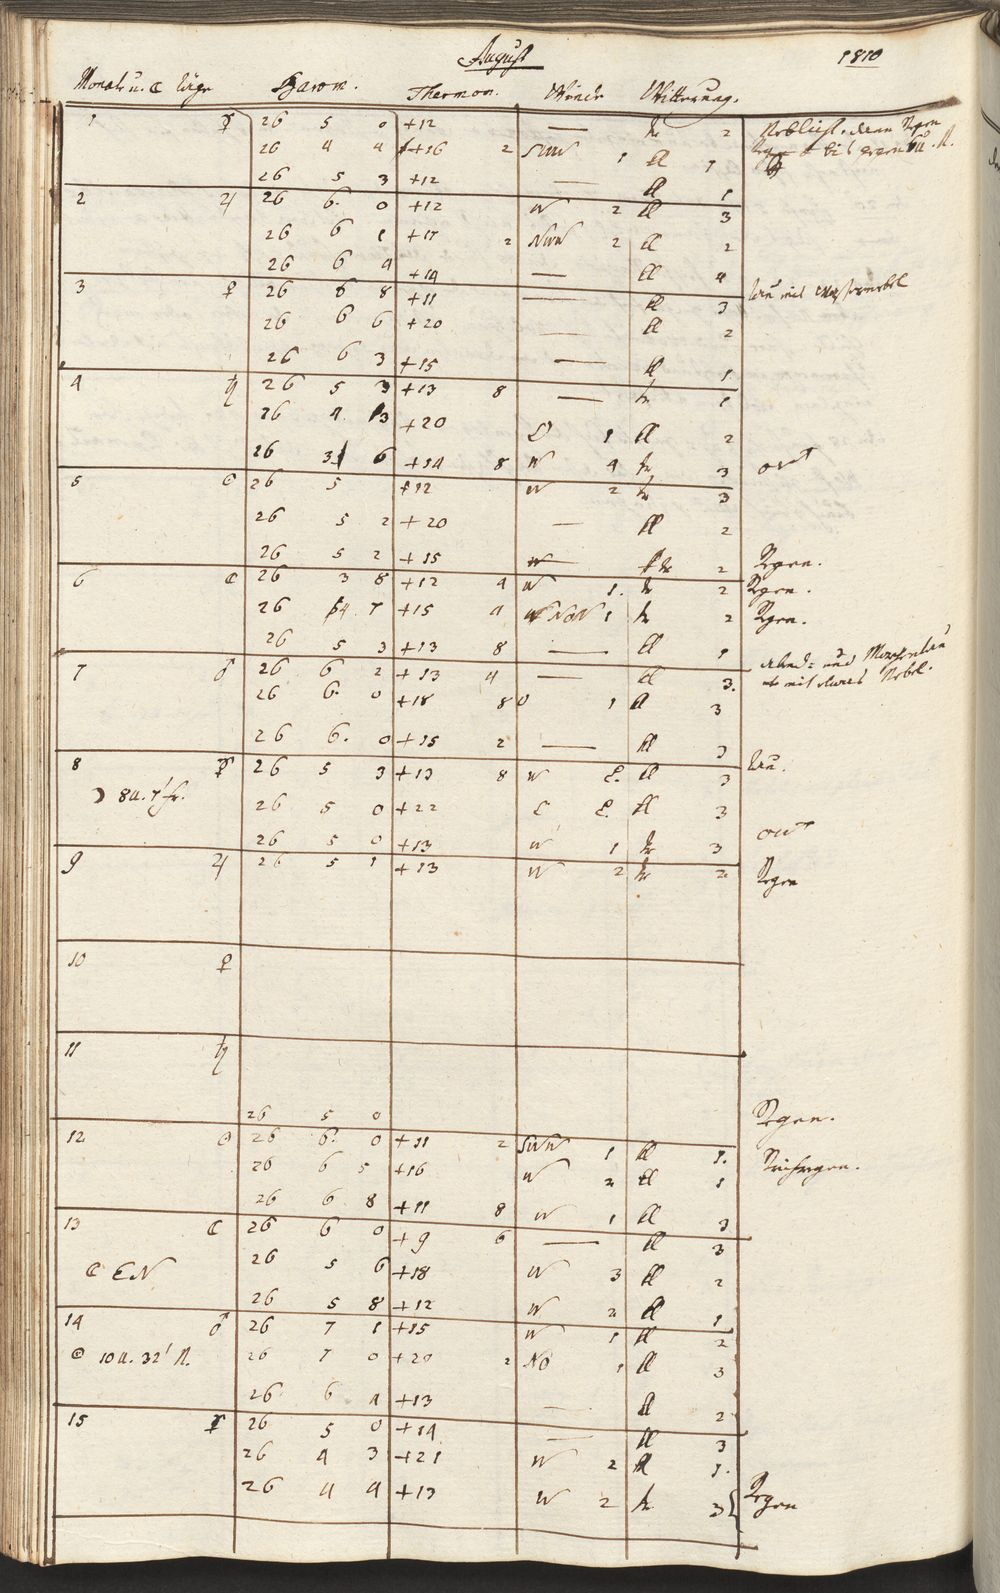 August 1810
Monats u. ☾ Täge Barom. Thermom. Winde Witterung.
1 ☿ 26 5 0 +12 — tr 2
26 4 4 +16 2 SWW 1 ll 1
26 5 3 +12 — ll 1
2 ♃ 26 6. 0 +12 W 2 ll 3
26 6 1 +17 2 NWW 2 ll 2
26 6 4 +14 — ll 4
3 ♀ 26 6 8 +11 — ll 3
26 6 6 +20 — ll 2
26 6 3 +15 — ll 1
4 ♄ 26 5 3 +13 8 — tr 1
26 4 3 +20 O 1 ll 2
26 3 6 +14 8 W 4 tr 3
5 ☉ 26 5 +12 W 2 tr 3
26 5 2 +20 — ll 2
26 5 2 +15 — tr 2 Regen.
6 ☾ 26 3 8 +12 4 W 1. tr 2 Regen.
26 4 7 +15 4 NON 1 tr 2 Regen.
26 5 3 +13 8 — ll 1
7 ♂ 26 6 2 +13 4 — ll 3.
mit etwas Nebel.
26 6. 0 +18 8 O 1 ll 3
26 6. 0 +15 2 — ll 3
8 ☿ 26 5 3 +13 8 W ll 3
☽ 8 u. 7' fr. 26 5 0 +22 ll 3
26 5 0 +13 W 1 tr 3
9 ♃ 26 5 1 +13 W 2 tr 2 Regen
10 ♀
11 ♄
26 5 0 Regen.
12 ☉ 26 6. 0 +11 2 SWW 1 ll 1.
26 6 5 +16 W 2 ll 1
26 6 8 +11 8 W 1 ll 3
13 ☾ 26 6 0 +9 6 — ll 3
☾ EN 26 5 6 +18 W 3 ll 2
26 5 8 +12 W 2 ll 1
14 ♂ 26 7 1 +15 W 1 ll 2
10 u. 32' N. 26 7 0 +20 2 NO 1 ll 3
26 6 4 +13 — ll 2
15 ☿ 26 5 0 +14 — ll 3
26 4 3 +21 W 2 ll 1.
26 4 4 +13 W 2 tr 3 Regen